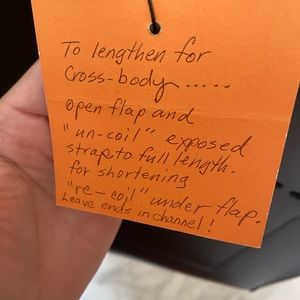 To lengthen for
Cross-body.....
open flap and
"un-coil" exposed
strap to full length.
for shortening
"re-coil" under flap.
Leave ends in channel!